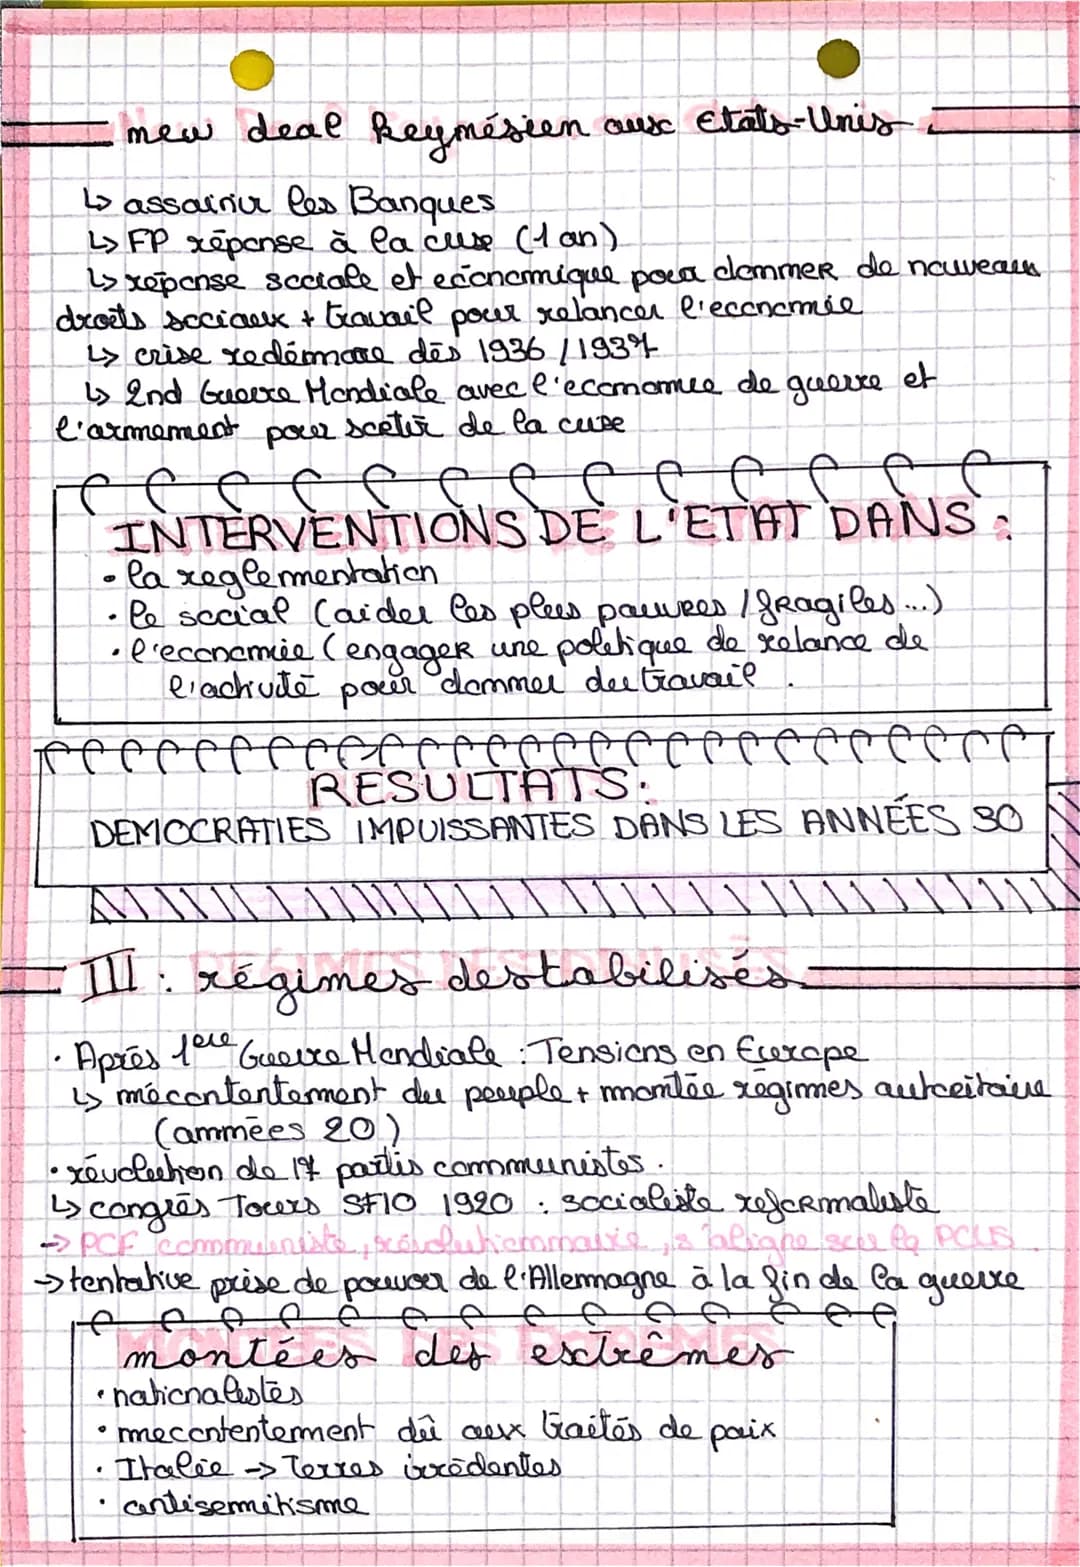 new deal Keynésien aux Etats-Unis
↳ assainir les Banques
↳ FP réponse à la crise (1 an)
↳ réponse sociale et économique pour donner de nouveaux
droits sociaux + travail pour relancer l'economie
↳ crise redémarre dès 1936 / 1937
↳ 2nd Guerre Mondiale avec l'economie de guerre et
l'armement pour sortir de la crise
INTERVENTIONS DE L'ETAT DANS :
• la reglementation
• le social (aider les plus pauvres / fragiles ...)
• l'economie (engager une politique de relance de
l'activité pour donner du travail.
RESULTATS:
DEMOCRATIES IMPUISSANTES DANS LES ANNÉES 30
III : régimes destabilisés
• Après 1ere Guerre Mondiale : Tensions en Europe
↳ mécontentement du peuple + montée régimes autoritaire
(années 20)
• révolution de 17 partis communistes.
↳ congrès Tours SFIO 1920 : socialiste reformaliste
→ PCF communiste, révolutionnaire, s'aligne sur la PCUS.
→ tentative prise de pouvoir de l'Allemagne à la fin de la guerre
montées des extrêmes
• nationalistes
• mecontentement dû aux traités de paix
• Italie → Terres irrédentes
• antisemitisme